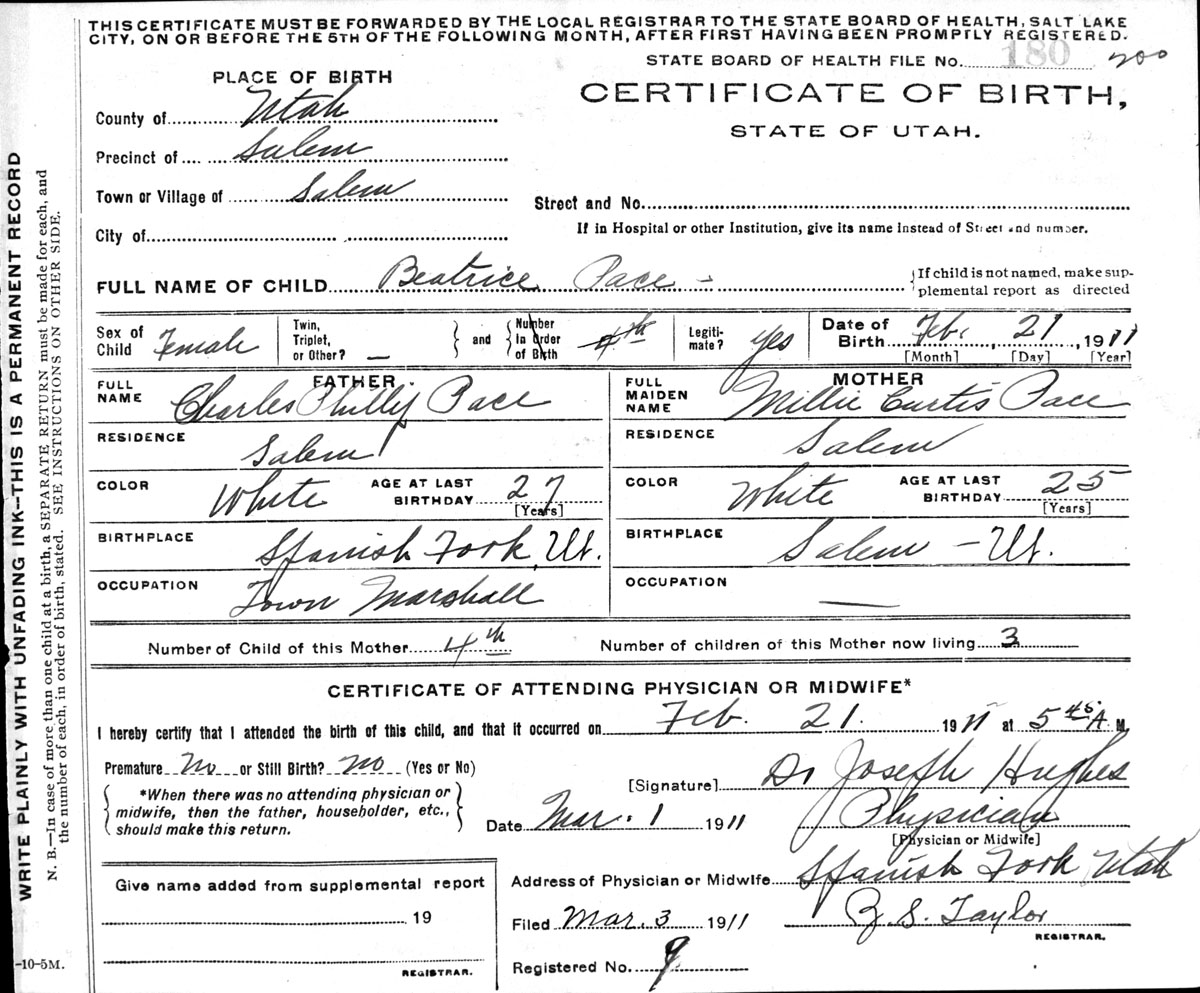 THIS CERTIFICATE MUST BE FORWARDED BY THE LOCAL REGISTRAR TO THE STATE BOARD OF HEALTH, SALT LAKE
CITY, ON OR BEFORE THE 5TH OF THE FOLLOWING MONTH, AFTER FIRST HAVING BEEN PROMPTLY REGISTERED.
STATE BOARD OF HEALTH FILE No. 180 200
PLACE OF BIRTH
CERTIFICATE OF BIRTH,
STATE OF UTAH.
County of Utah
Precinct of Salem
Town or Village of Salem
Street and No.
City of
If in Hospital or other Institution, give its name instead of Street and number.
FULL NAME OF CHILD Beatrice Pace
If child is not named, make sup-
plemental report as directed
Sex of Child Female
Twin, Triplet, or Other? —
and
Number In Order of Birth 4th
Legiti-
mate? Yes
Date of Birth Feb. 21, 1911
[Month] [Day] [Year]
FATHER
FULL NAME Charles Philly Pace
MOTHER
FULL MAIDEN NAME Millie Curtis Pace
RESIDENCE Salem
RESIDENCE Salem
COLOR White AGE AT LAST BIRTHDAY 27 [Years]
COLOR White AGE AT LAST BIRTHDAY 25 [Years]
BIRTHPLACE Spanish Fork, Ut.
BIRTHPLACE Salem - Ut.
OCCUPATION Town Marshall
OCCUPATION —
Number of Child of this Mother 4th
Number of children of this Mother now living 3
CERTIFICATE OF ATTENDING PHYSICIAN OR MIDWIFE*
I hereby certify that I attended the birth of this child, and that it occurred on Feb. 21. 1911 at 5 45 A. M.
Premature No or Still Birth? No (Yes or No)
*When there was no attending physician or
midwife, then the father, householder, etc.,
should make this return.
[Signature] Dr Joseph Hughes
Date Mar. 1 1911 Physician
[Physician or Midwife]
Give name added from supplemental report
19
REGISTRAR.
Address of Physician or Midwife Spanish Fork Utah
Filed Mar. 3 1911
Z. S. Taylor
REGISTRAR.
Registered No. 9
WRITE PLAINLY WITH UNFADING INK—THIS IS A PERMANENT RECORD
N. B.—In case of more than one child at a birth, a SEPARATE RETURN must be made for each, and
the number of each, in order of birth, stated. SEE INSTRUCTIONS ON OTHER SIDE.
-10-5M.